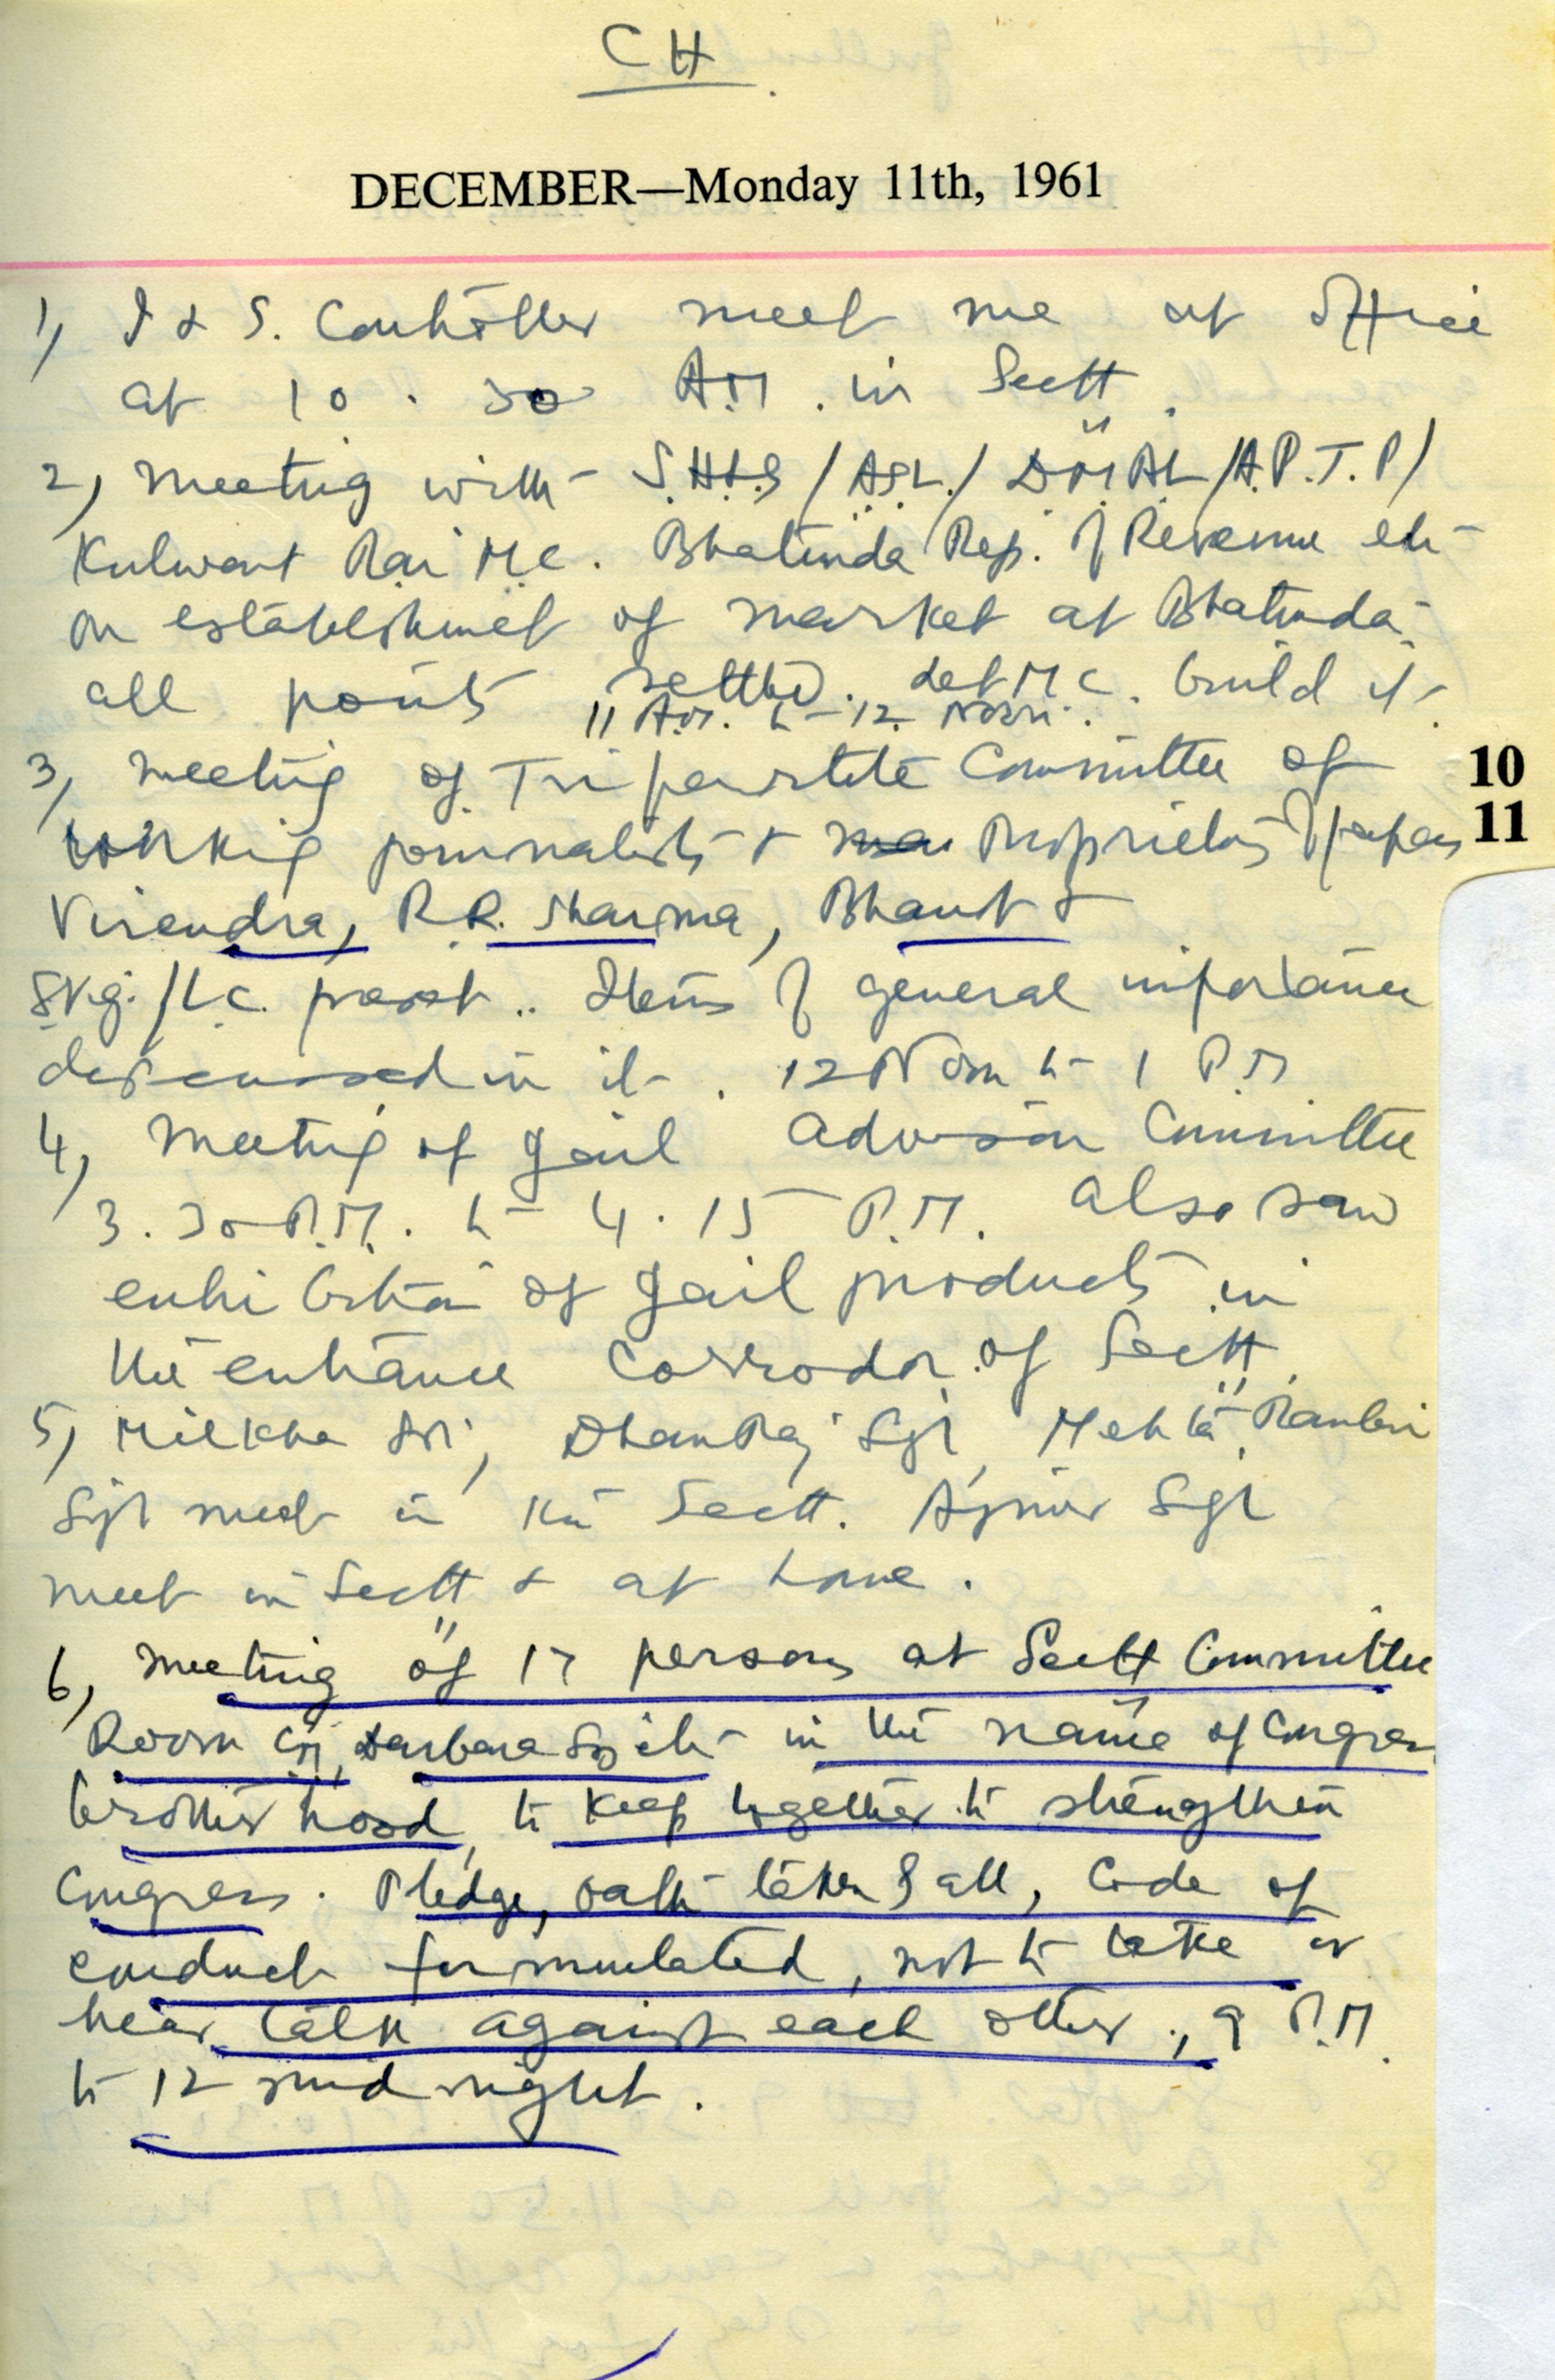 CH
DECEMBER—Monday 11th, 1961
1) I & S. Controller meet me at office
at 10 . 30 A.M. in Sectt.
2) Meeting with /A.P.T.P/
Kulwant Rai M.C. Bhatinda Rep. of Revenue etc
on establishmet of market at Bhatinda
all points settled. Let M.C. build it.
11 A.M. to 12 Noon.
3) Meeting of Tripartite Committee of
10
working journalists & Proprietors of papers
11
Virendra, R.R. Sharma, Bhanot &
/L.C. present.. Items of general importance
discussed in it. 12 Noon to 1 P.M
4) Meeting of Jail Advison Committee
3.30 P.M. to 4.15 P.M. also saw
exhibition of Jail products in
the entrance Corrodor of Sectt.
5) Milkha Sgh, Dhan Raj Sgh, Mehta, Ranbir
Sgh meet in the Sectt. Ajmer Sgh
meet in Sectt & at home.
6) Meeting of 17 persons at Sectt Committee
Room CM, Darbara Sgh etc in the name of Congress
brother hood, to keep together to strengthen
Congress. Pledge, oath taken by all, Code of
conduct formulated, not to take or
hear talk against each other., 9 P.M.
to 12 mid night.